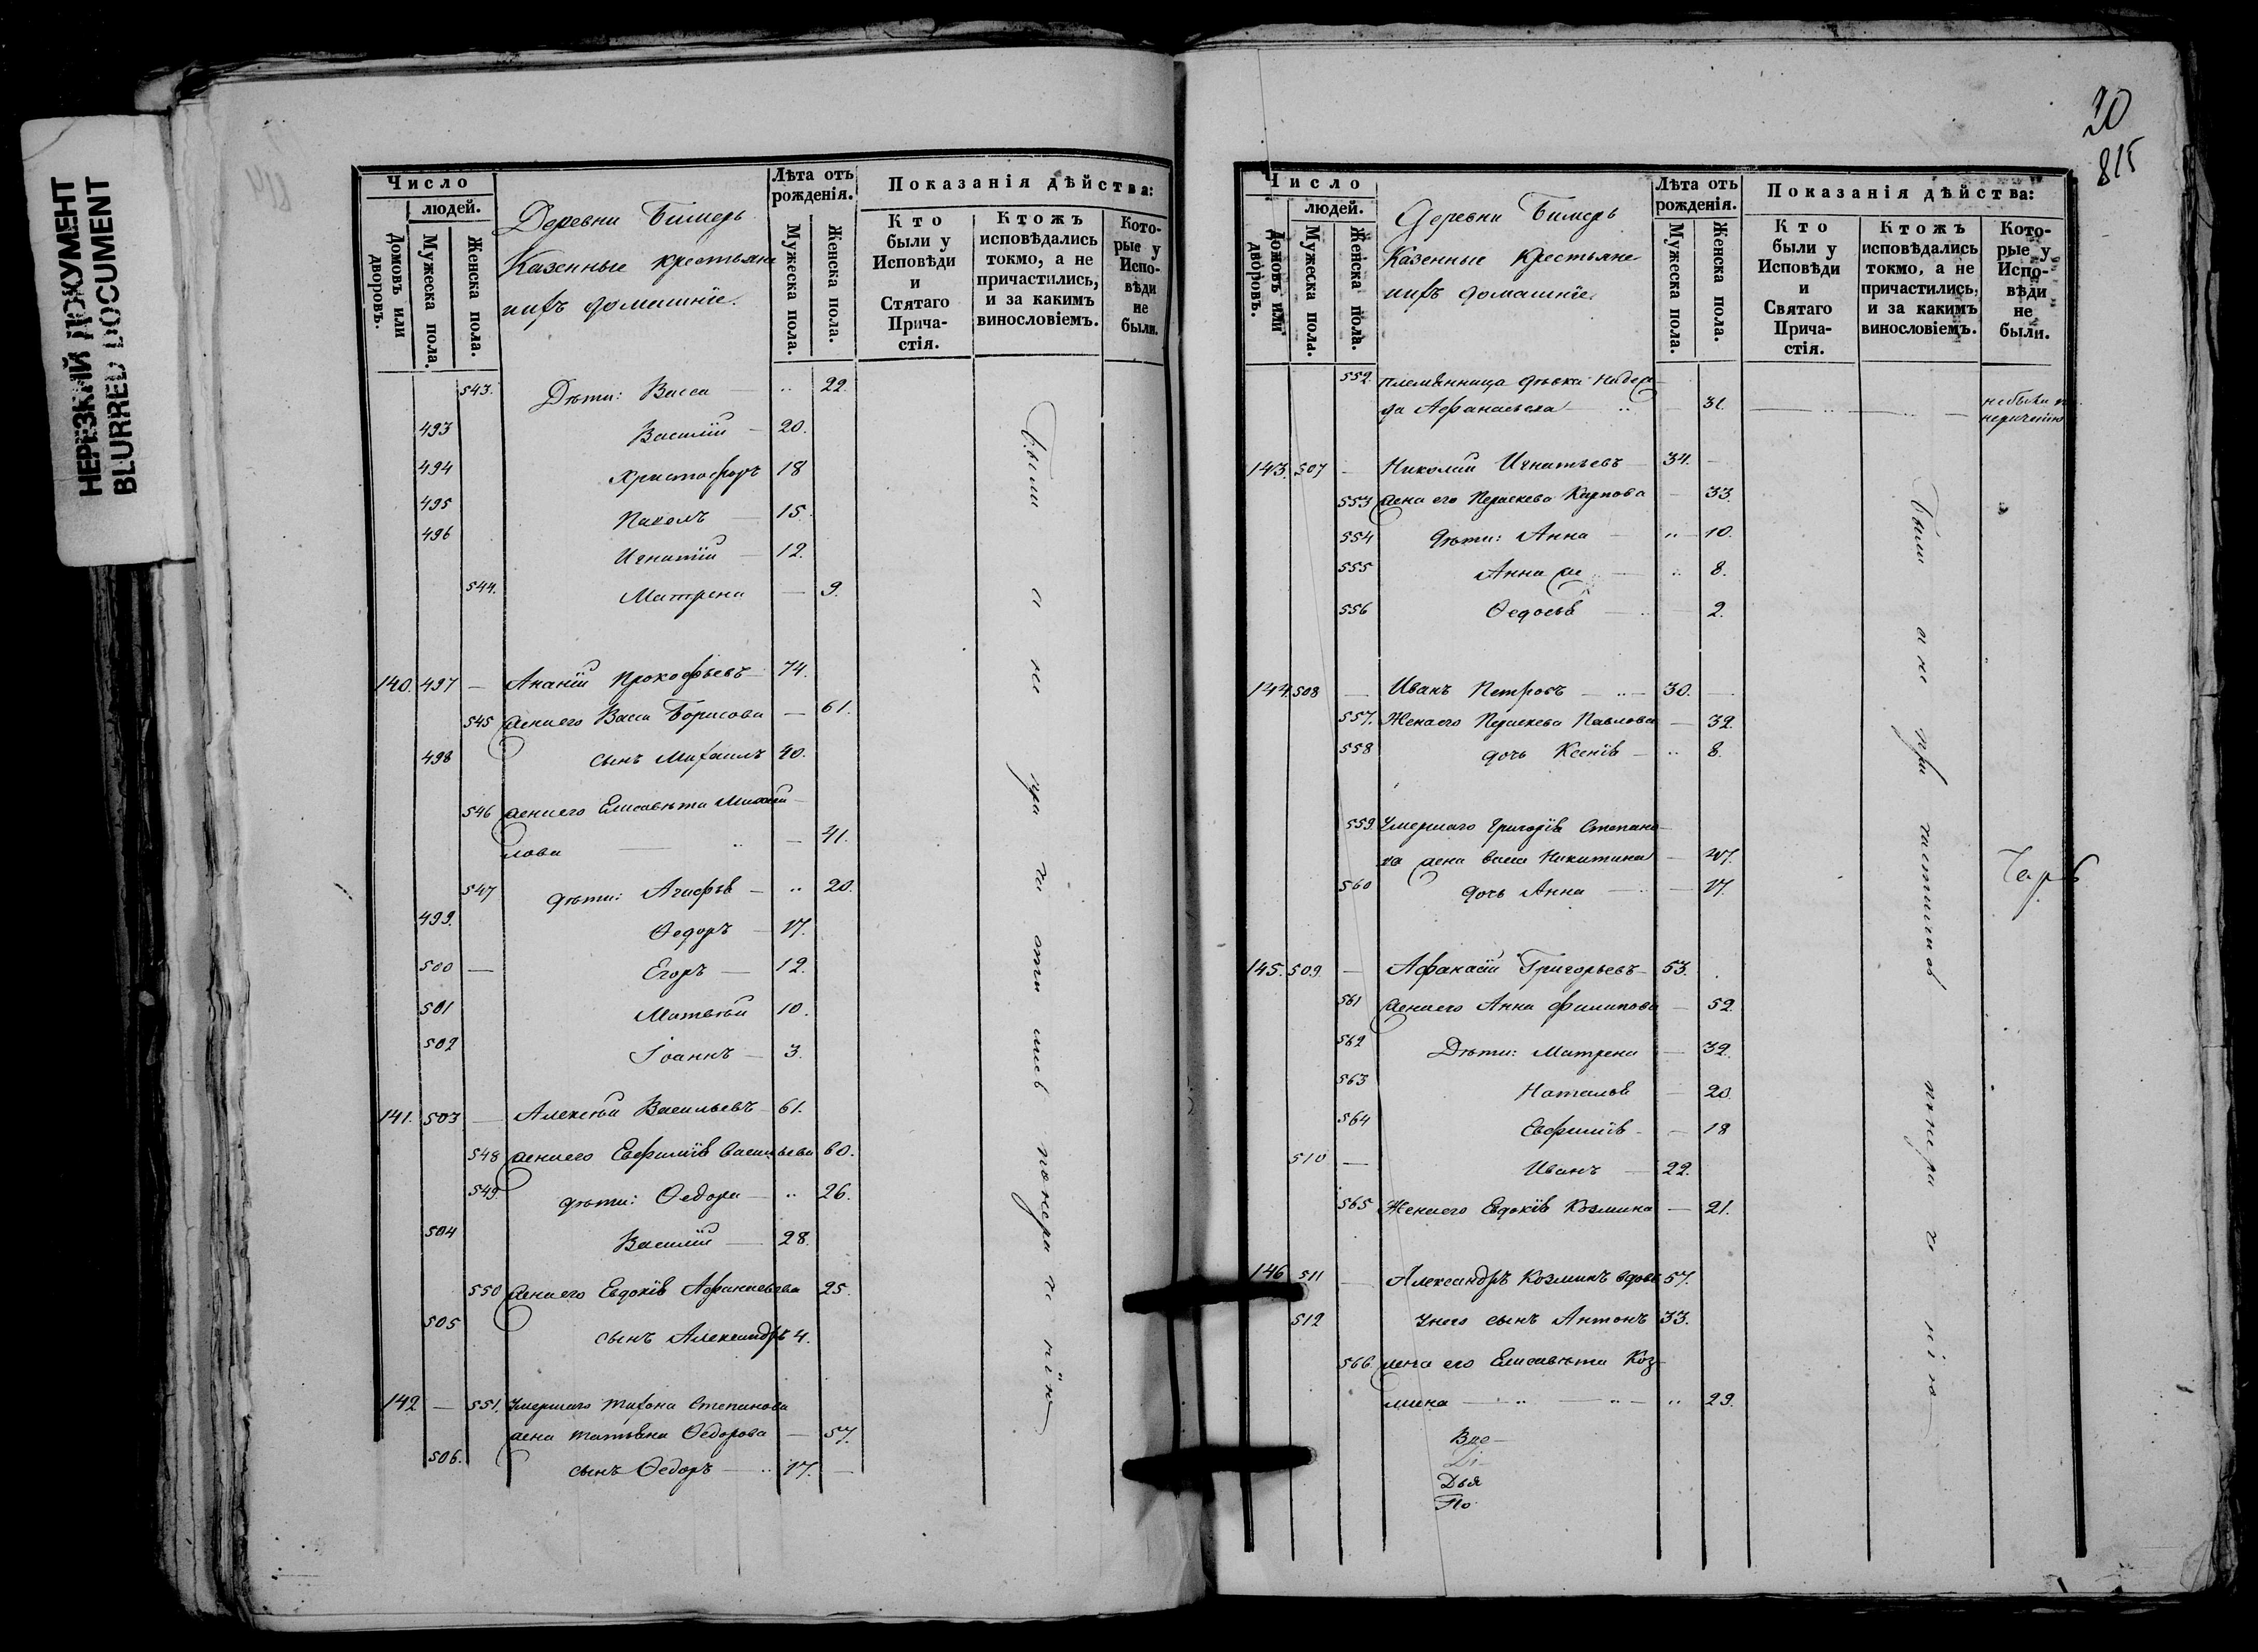 НЕРЕЗКИЙ ДОКУМЕНТ
BLURRED DOCUMENT
Число
людей.
Домовъ или дворовъ.
Мужеска пола.
Женска пола.
Деревни Бимерь
Казенные крестьяне
ихъ домашніе.
Лѣта отъ рожденія.
Мужеска пола.
Женска пола.
Показанія дѣйства:
Кто были у Исповѣди и Стятаго Прича-стія.
Ктожъ исповѣдались токмо, а не причастились, и за какимъ винословіемъ.
Кото-рые у Испо-вѣди не были.
543. Дѣти: Васса — .. 22.
493 Василій — 20.
494 Христофоръ 18
495 Павелъ — 15.
496 Игнатій — 12.
544. Матрена — 9.
140. 497 — Ананій Прокофьевъ — 74.
545 жена его Васса Борисова — 61.
498 сынъ Михаилъ 40.
546 жена его Елисавета Михай-
лова — .. — 41.
547 дѣти: Агафья — .. 20.
499. Ѳедоръ — 17.
500 — Егоръ — 12.
501 Матвѣй 10.
502 Іоаннъ — 3.
141. 503 — Алексѣй Васильевъ — 61.
548 жена его Евфимія Васильева 60.
549. дѣти: Ѳедора — .. 26.
504 Василій — 28.
550 жена его Евдокія Афанасьева 25.
505 сынъ Александръ 4.
142 — 551. Умершаго Тихона Степанова
жена Татьяна Ѳедорова — 57.
506. сынъ Ѳедоръ — .. 17. —
Были а не при
20
815
Число
людей.
Домовъ или дворовъ.
Мужеска пола.
Женска пола.
Деревни Бимерь
Казенные крестьяне
ихъ домашніе.
Лѣта отъ рожденія.
Мужеска пола.
Женска пола.
Показанія дѣйства:
Кто были у Исповѣди и Святаго Прича-стія.
Ктожъ исповѣдались токмо, а не причастились, и за какимъ винословіемъ.
Кото-рые у Испо-вѣди не были.
552. племянница дѣвка Надеж-
да Афанасьева — .. — 31. — .. — .. — небыли по
нераченію
143. 507 — Николай Игнатьевъ — 34. —
553 жена его Параскева Карпова — 33.
554 дѣти: Анна — .. — 10.
555 Анна же — .. 8.
556 Ѳедосья — .. — 2.
144. 508 — Иванъ Петровъ — .. — 30. —
557. Жена его Параскева Павлова — 32.
558 дочь Ксенія — .. 8.
559. Умершаго Григорія Степано-
ва жена Васса Никитина — 47.
560 дочь Анна — .. — 17.
145. 509 — Афанасій Григорьевъ — 53.
561 жена его Анна Филипова — 52.
562 Дѣти: Матрена — 32.
563 Наталья — 20.
564 Евфимія — — 18
510 — Иванъ — 22.
565 Жена его Евдокія Козмина — 21.
146 511 — Александръ Козминъ вдовъ 57.
512 У него сынъ Антонъ 33.
566 жена его Елисавета Коз-
мина — .. — .. — .. 29.
Были а не при частились по нера че нію
Царь
Вре-
Ді-
Дья
По